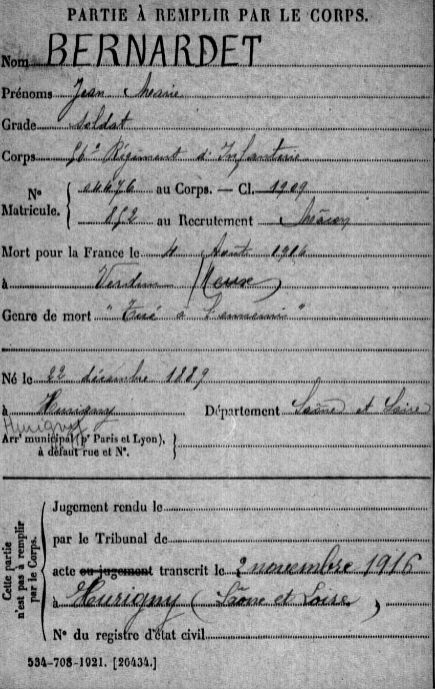 PARTIE À REMPLIR PAR LE CORPS.
Nom BERNARDET
Prénoms Jean Marie
Grade soldat
Corps 56e Régiment d'Infanterie
No Matricule. 04676 au Corps. — Cl. 1909
852 au Recrutement Mâcon
Mort pour la France le 4 Août 1916
à Verdun (Meuse)
Genre de mort "Tué à l'ennemi"
Né le 22 décembre 1889
à Hurigny Département Saône et Loire
Hurigny
Arrt municipal (pr Paris et Lyon),
à défaut rue et No.
Cette partie n'est pas à remplir par le Corps.
Jugement rendu le
par le Tribunal de
acte ou jugement transcrit le 2 novembre 1916
à Hurigny (Saône et Loire)
No du registre d'état civil
534-708-1921. [26434.]